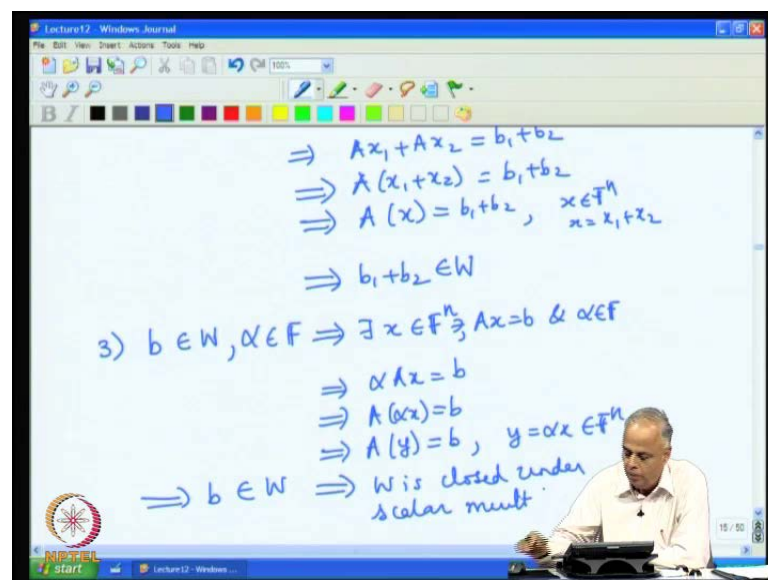 Lecture12 - Windows Journal
File Edit View Insert Actions Tools Help
100%
B I
⇒ Ax₁ + Ax₂ = b₁ + b₂
⇒ A(x₁+x₂) = b₁ + b₂
⇒ A(x) = b₁+b₂, x ∈ Fⁿ
x = x₁+x₂
⇒ b₁+b₂ ∈ W
3) b ∈ W, α ∈ F ⇒ ∃ x ∈ Fⁿ ∋ Ax = b & α ∈ F
⇒ α Ax = b
⇒ A(αx) = b
⇒ A(y) = b, y = αx ∈ Fⁿ
⇒ b ∈ W ⇒ W is closed under
scalar mult
15 / 50
NPTEL
start Lecture12 - Windows ...